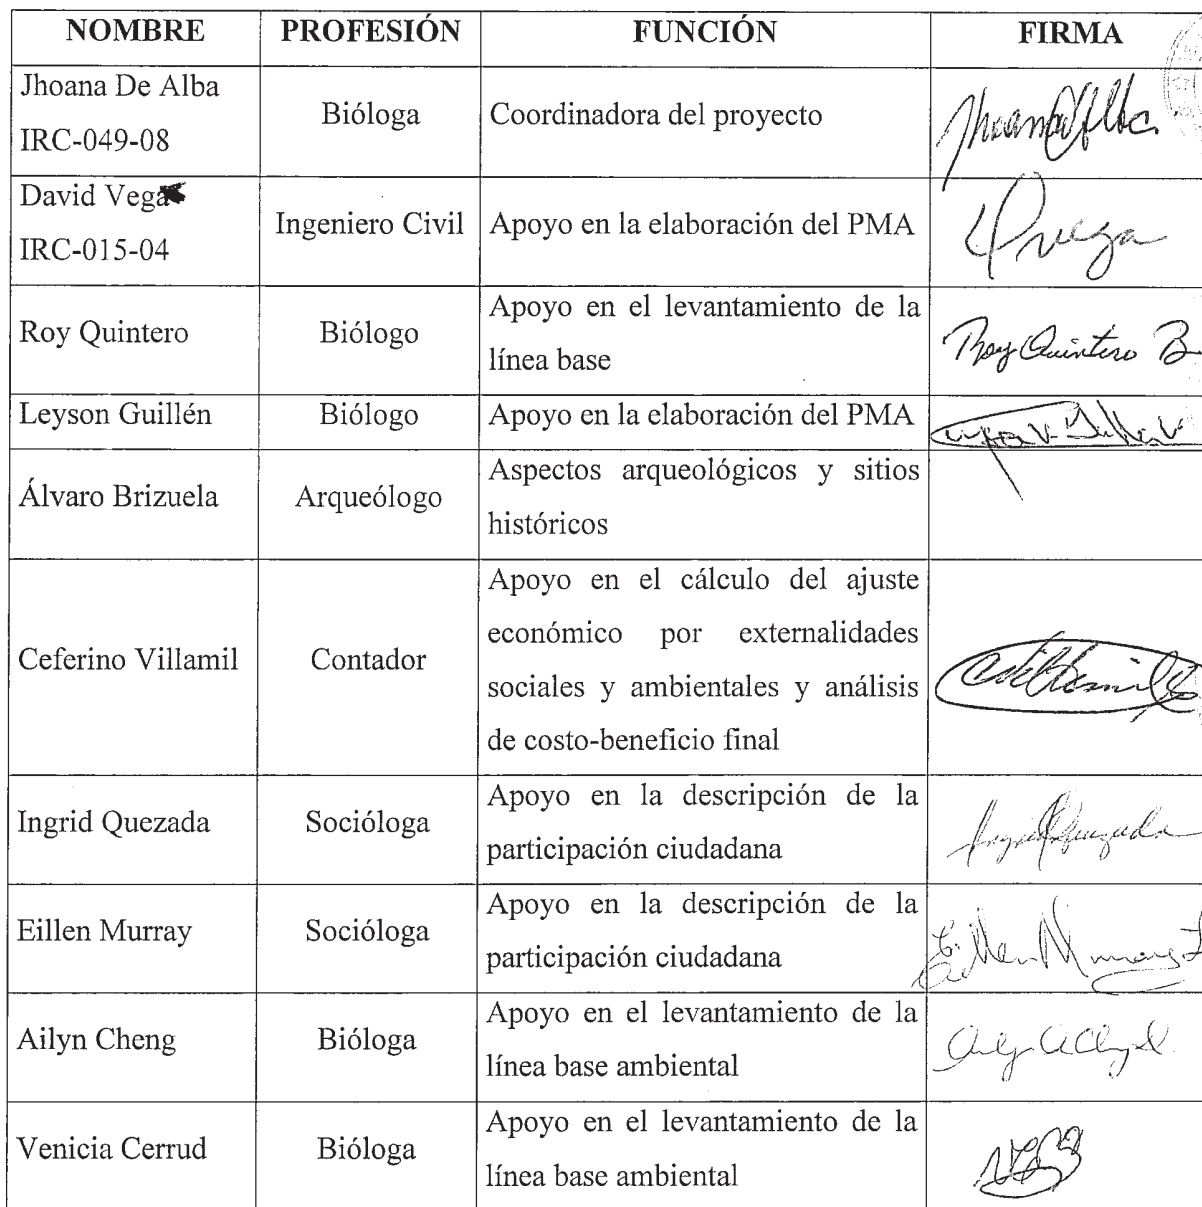 NOMBRE PROFESIÓN FUNCIÓN FIRMA
Jhoana De Alba
IRC-049-08
Bióloga
Coordinadora del proyecto
David Vega
IRC-015-04
Ingeniero Civil
Apoyo en la elaboración del PMA
Roy Quintero
Biólogo
Apoyo en el levantamiento de la
línea base
Roy Quintero B
Leyson Guillén
Biólogo
Apoyo en la elaboración del PMA
Álvaro Brizuela
Arqueólogo
Aspectos arqueológicos y sitios
históricos
Ceferino Villamil
Contador
Apoyo en el cálculo del ajuste
económico por externalidades
sociales y ambientales y análisis
de costo-beneficio final
Ingrid Quezada
Socióloga
Apoyo en la descripción de la
participación ciudadana
Eillen Murray
Socióloga
Apoyo en la descripción de la
participación ciudadana
Ailyn Cheng
Bióloga
Apoyo en el levantamiento de la
línea base ambiental
Venicia Cerrud
Bióloga
Apoyo en el levantamiento de la
línea base ambiental